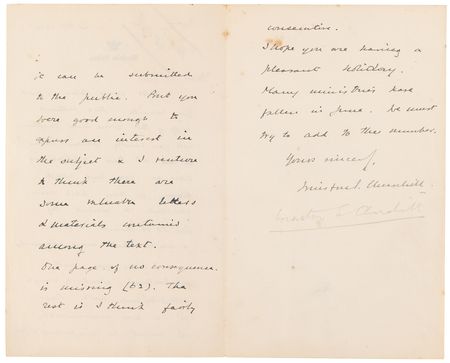 it can be submitted
to the public. But you
were good enough to
express an interest in
the subject & I venture
to think there are
some valuable letters
& materials contained
among the text.
One page of no consequence
is missing (62). The
rest is I think fairly
consecutive.
I hope you are having a
pleasant holiday.
Many ministries have
fallen in June. We must
try to add to the number.
Yours sincerely,
Winston S. Churchill
Winston S Churchill